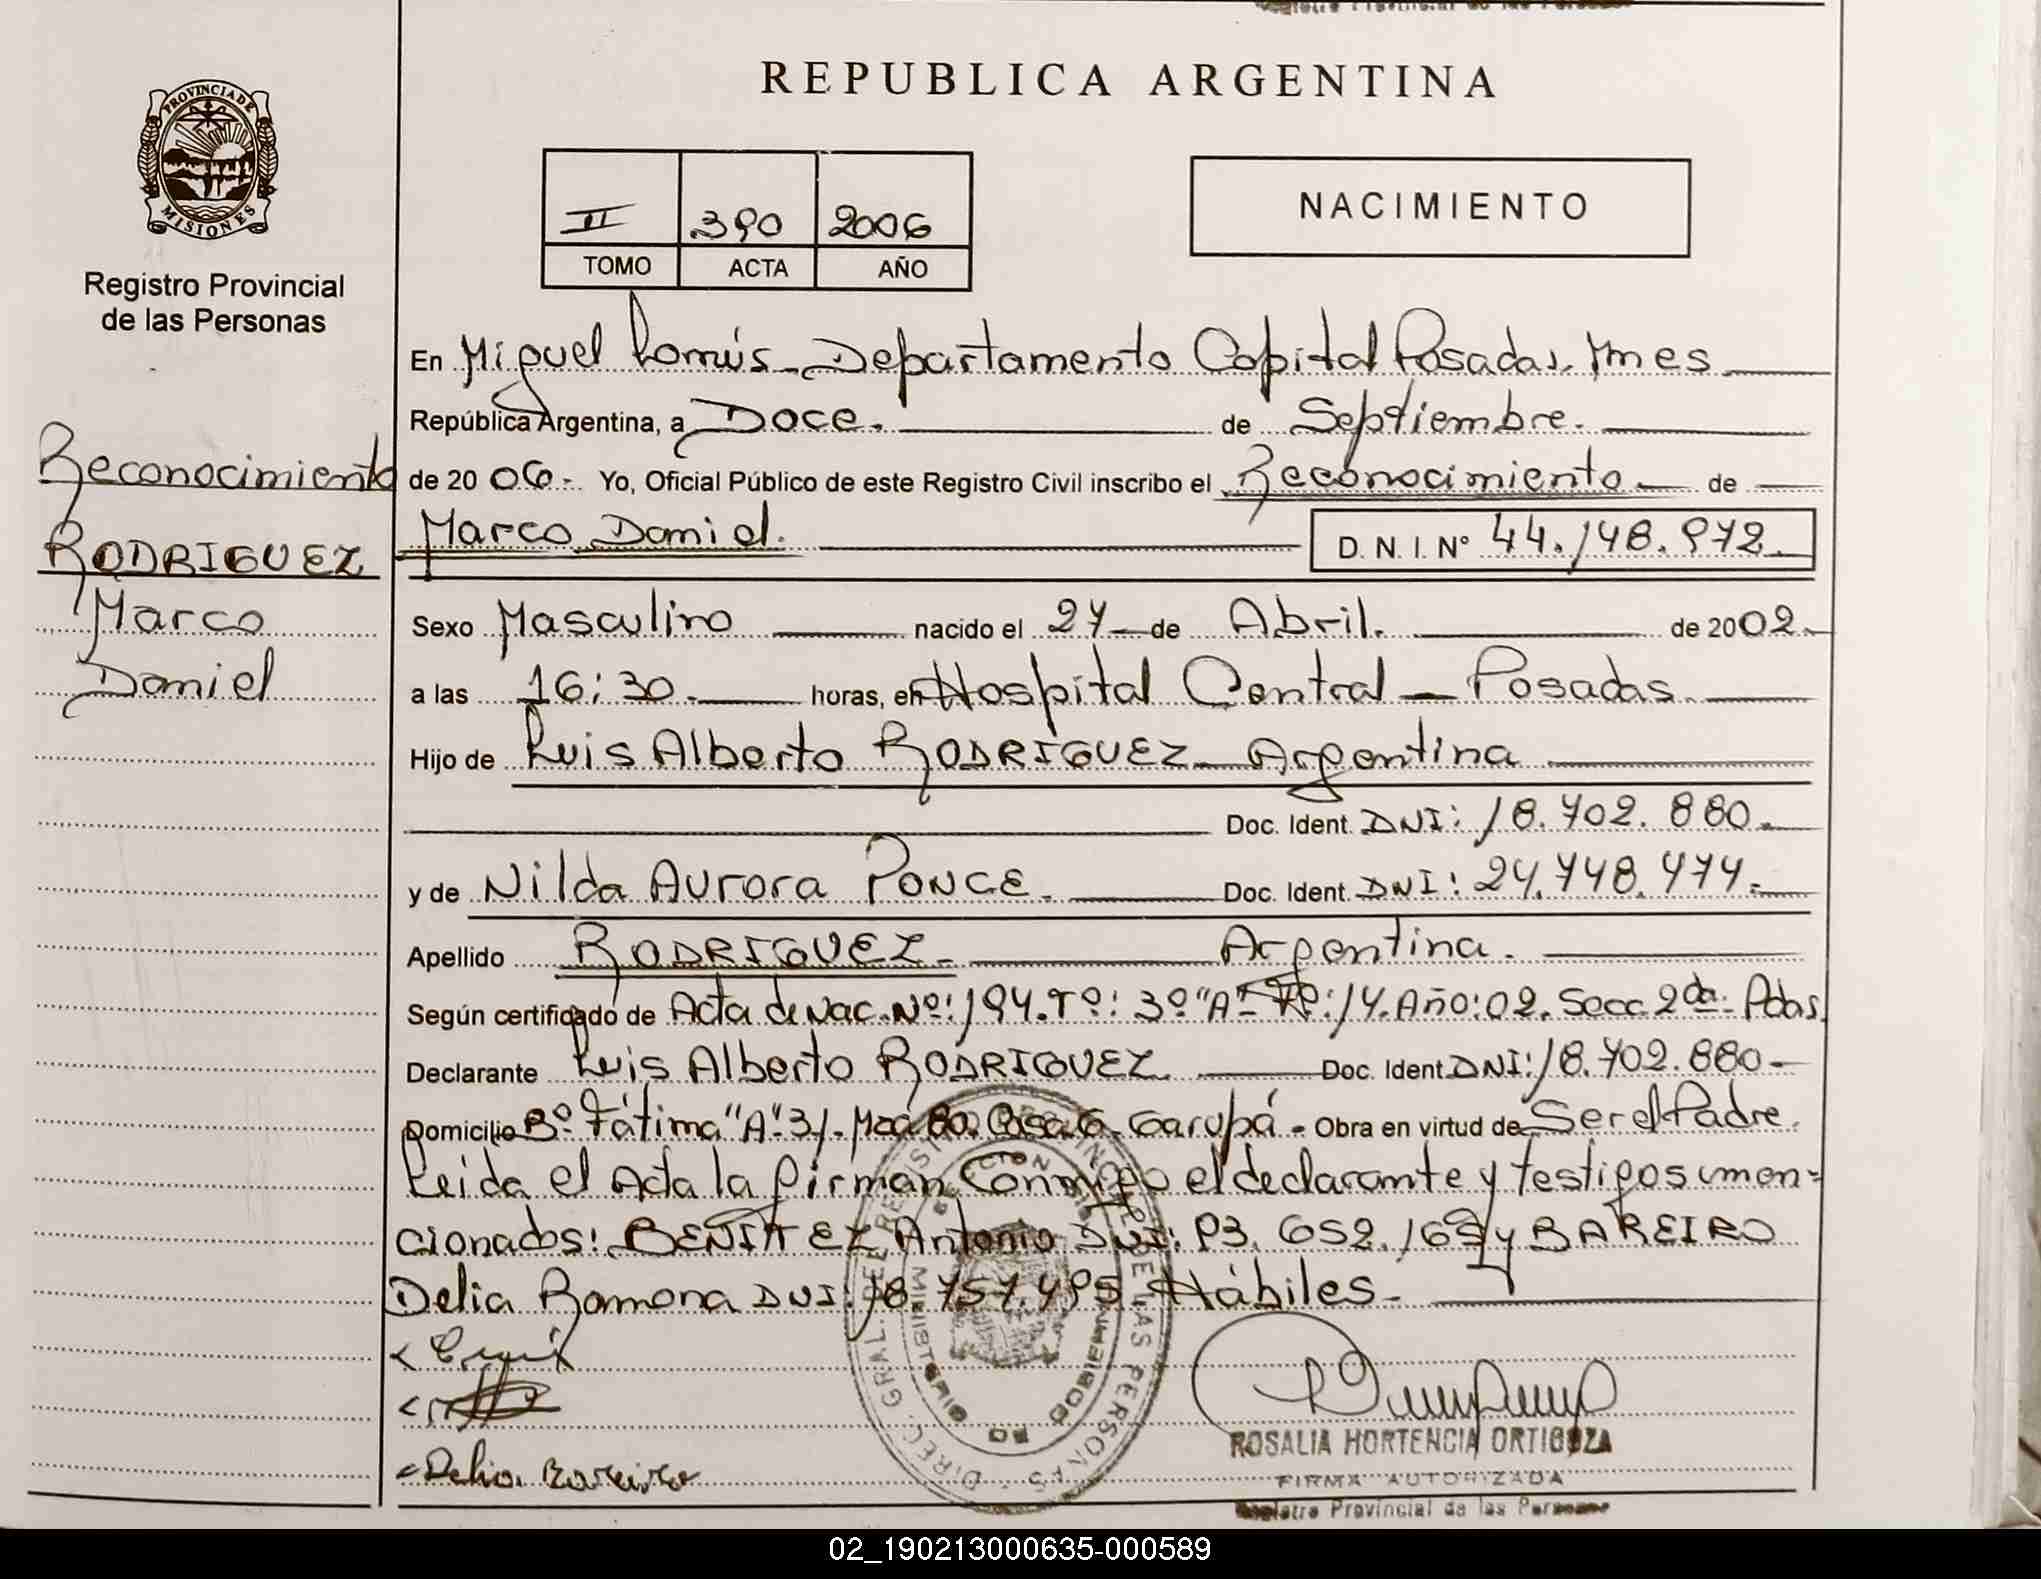 REPUBLICA ARGENTINA
PROVINCIA DE
MISIONES
Registro Provincial
de las Personas
II 390 2006
TOMO ACTA AÑO
NACIMIENTO
Reconocimiento
RODRIGUEZ
Marco
Daniel
En Miguel Lanús - Departamento Capital Posadas. Mnes
República Argentina, a Doce. de Septiembre.
de 20 06.- Yo, Oficial Público de este Registro Civil inscribo el Reconocimiento de
Marco Daniel. D. N. I. Nº 44.148.972
Sexo Masculino nacido el 27 de Abril. de 2002.
a las 16:30. horas, en Hospital Central - Posadas.
Hijo de Luis Alberto RODRIGUEZ - Argentina
Doc. Ident. DNI: 18.702.880.
y de Nilda Aurora PONCE. Doc. Ident. DNI: 24.748.474.
Apellido RODRIGUEZ. Argentina.
Según certificado de Acta de Nac. Nº: 194. Tº: 3º "A" Fº: 14. Año: 02. Secc. 2da. Pdas.
Declarante Luis Alberto RODRIGUEZ Doc. Ident. DNI: 18.702.880-
Domicilio Bº Fátima "A" 31. Mza 80. Casa 6. Garupá. Obra en virtud de Ser el Padre.
Leida el Acta la firman Conmigo el declarante y testigos men=
cionados: BENITEZ Antonio DNI: 93.652.169 y BAREIRO
Delia Ramona DNI: 18.757.495 Hábiles.
Delia Bareiro
DIREC. GRAL. DEL REGISTRO PROVINCIAL DE LAS PERSONAS
MINISTERIO DE GOBIERNO
ROSALIA HORTENCIA ORTIGOZA
FIRMA AUTORIZADA
Registro Provincial de las Personas
02_190213000635-000589